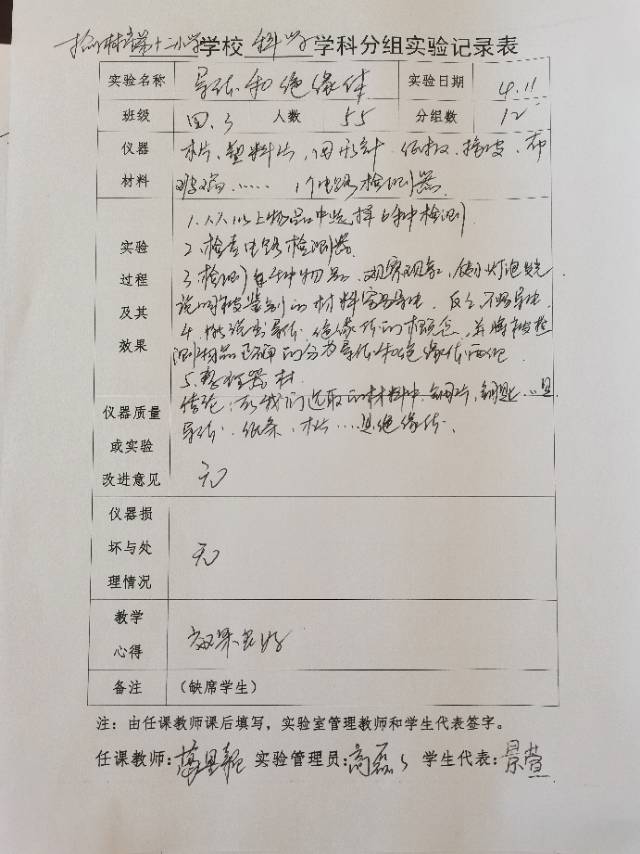 榆林市第十二小学学校 科学 学科分组实验记录表
实验名称 导体和绝缘体 实验日期 4.11
班级 四.3 人数 55 分组数 12
仪器材料 木片、塑料片、回形针、纸板、橡皮、布
玻璃…… 1个电路检测器
实验过程及其效果
1.从以上物品中选择6种中检测
2.检查电路检测器
3.检测每种物品,观察现象,使小灯泡发光
说明被鉴别的材料容易导电,反之不易导电
4.概说出导体、绝缘体的概念,并将被检
测物品正确的分为导体和绝缘体两组
5.整理器材
结论:在我们选取的材料中,铜片,钥匙…是
导体,纸条,木片…是绝缘体.
仪器质量或实验改进意见 无
仪器损坏与处理情况 无
教学心得 效果良好
备注 (缺席学生)
注:由任课教师课后填写,实验室管理教师和学生代表签字。
任课教师: 实验管理员:高磊 学生代表:景萱